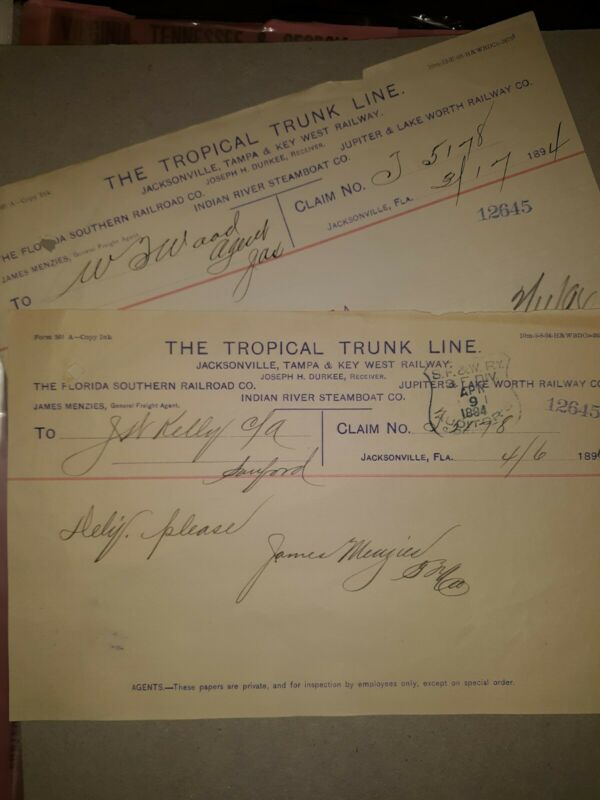 VIRGINIA, TENNESSEE & GEORGIA
THE TROPICAL TRUNK LINE.
JACKSONVILLE, TAMPA & KEY WEST RAILWAY.
JOSEPH H. DURKEE, RECEIVER.
THE FLORIDA SOUTHERN RAILROAD CO. JUPITER & LAKE WORTH RAILWAY CO.
INDIAN RIVER STEAMBOAT CO.
JAMES MENZIES, General Freight Agent.
TO W Wood CLAIM NO. J 5178
agent
JACKSONVILLE, FLA. 3/17 1894
12645
Form 591 A—Copy Ink
THE TROPICAL TRUNK LINE.
JACKSONVILLE, TAMPA & KEY WEST RAILWAY.
JOSEPH H. DURKEE, RECEIVER.
THE FLORIDA SOUTHERN RAILROAD CO. JUPITER & LAKE WORTH RAILWAY CO
INDIAN RIVER STEAMBOAT CO.
JAMES MENZIES, General Freight Agent.
APR
9
1894
12645
TO J W Kelly C/A CLAIM NO. 5178
Sanford
JACKSONVILLE, FLA. 4/6 189
please
James Menzies
AGENTS.—These papers are private, and for inspection by employees only, except on special order.